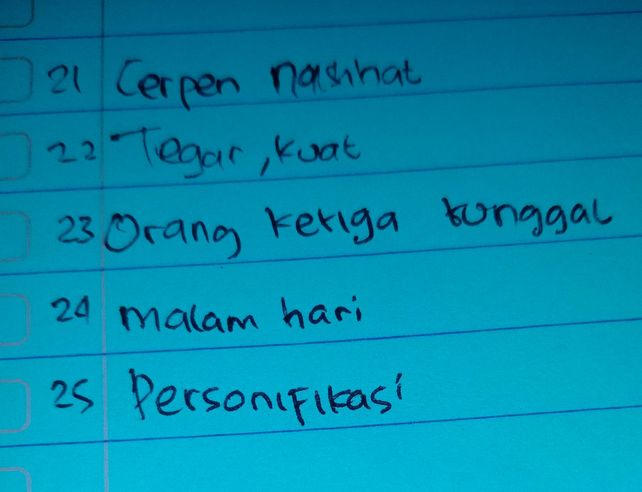 21 Cerpen nasihat
22 Tegar, kuat
23 Orang ketiga tunggal
24 malam hari
25 Personifikasi